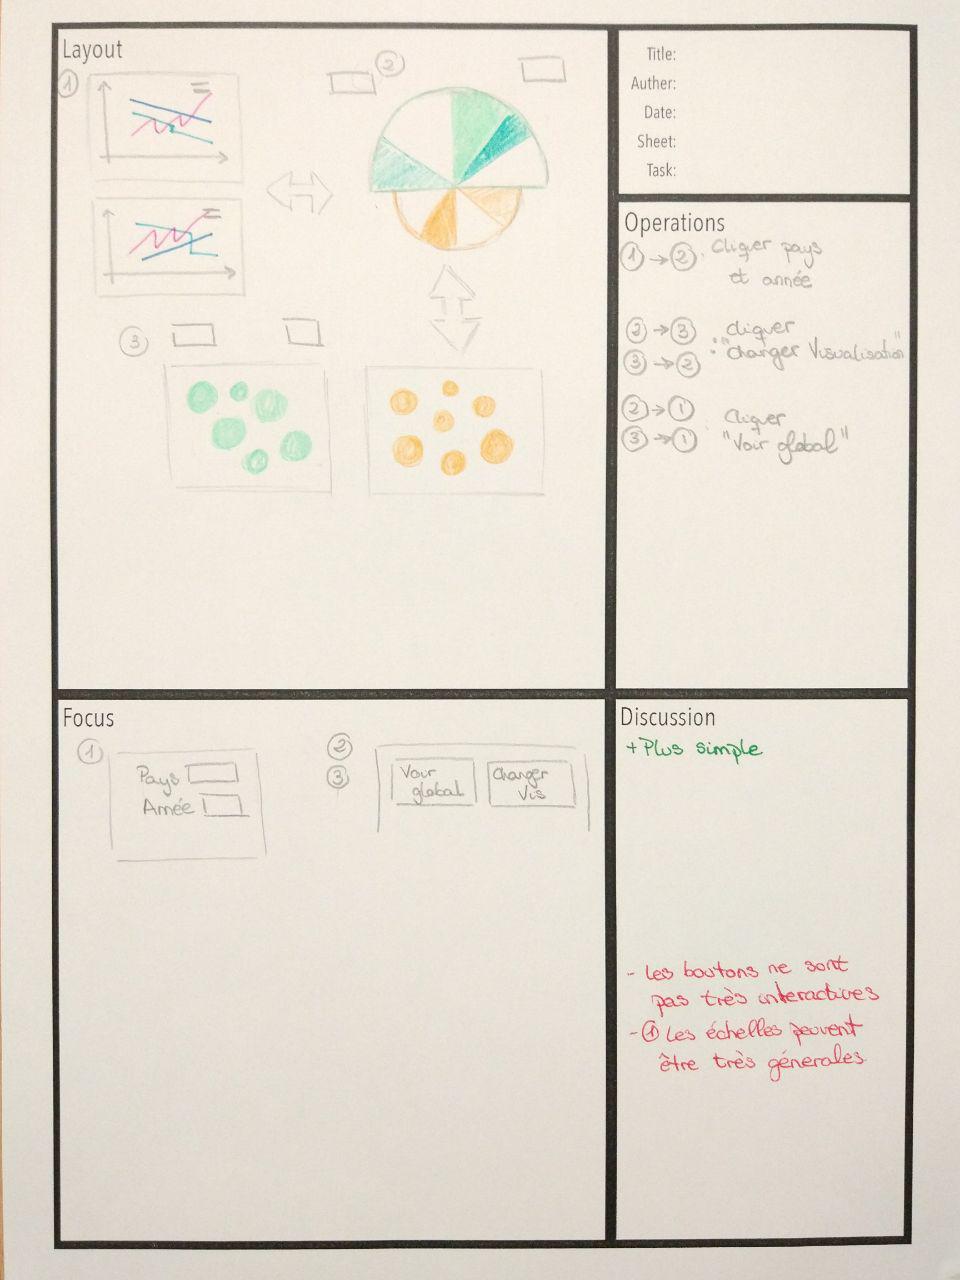 Layout
1
2
3
Title:
Auther:
Date:
Sheet:
Task:
Operations
1 → 2 : Cliquer pays
et année
2 → 3 cliquer
3 → 2 : "changer Visualisation"
2 → 1 Cliquer
3 → 1 "Voir global"
Focus
1
Pays
Année
2
3
Voir
global
Changer
Vis
Discussion
+ Plus simple
- Les boutons ne sont
pas très interactives
- 1 Les échelles peuvent
être très génerales